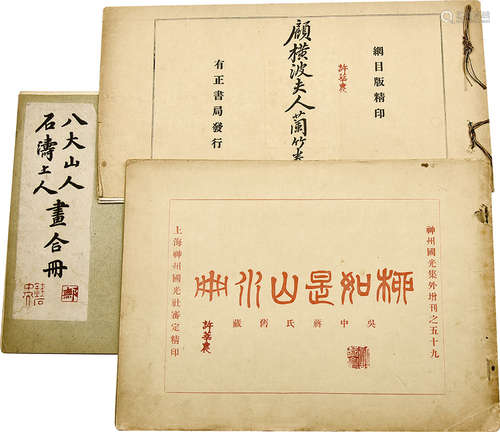 網目版精印
顧橫波夫人蘭竹
有正書局發行
八大山人
石濤上人
畫合冊
神州國光集外增刊之五十九
柳如是山水冊
吳中蔣氏舊藏
上海神州國光社審定精印